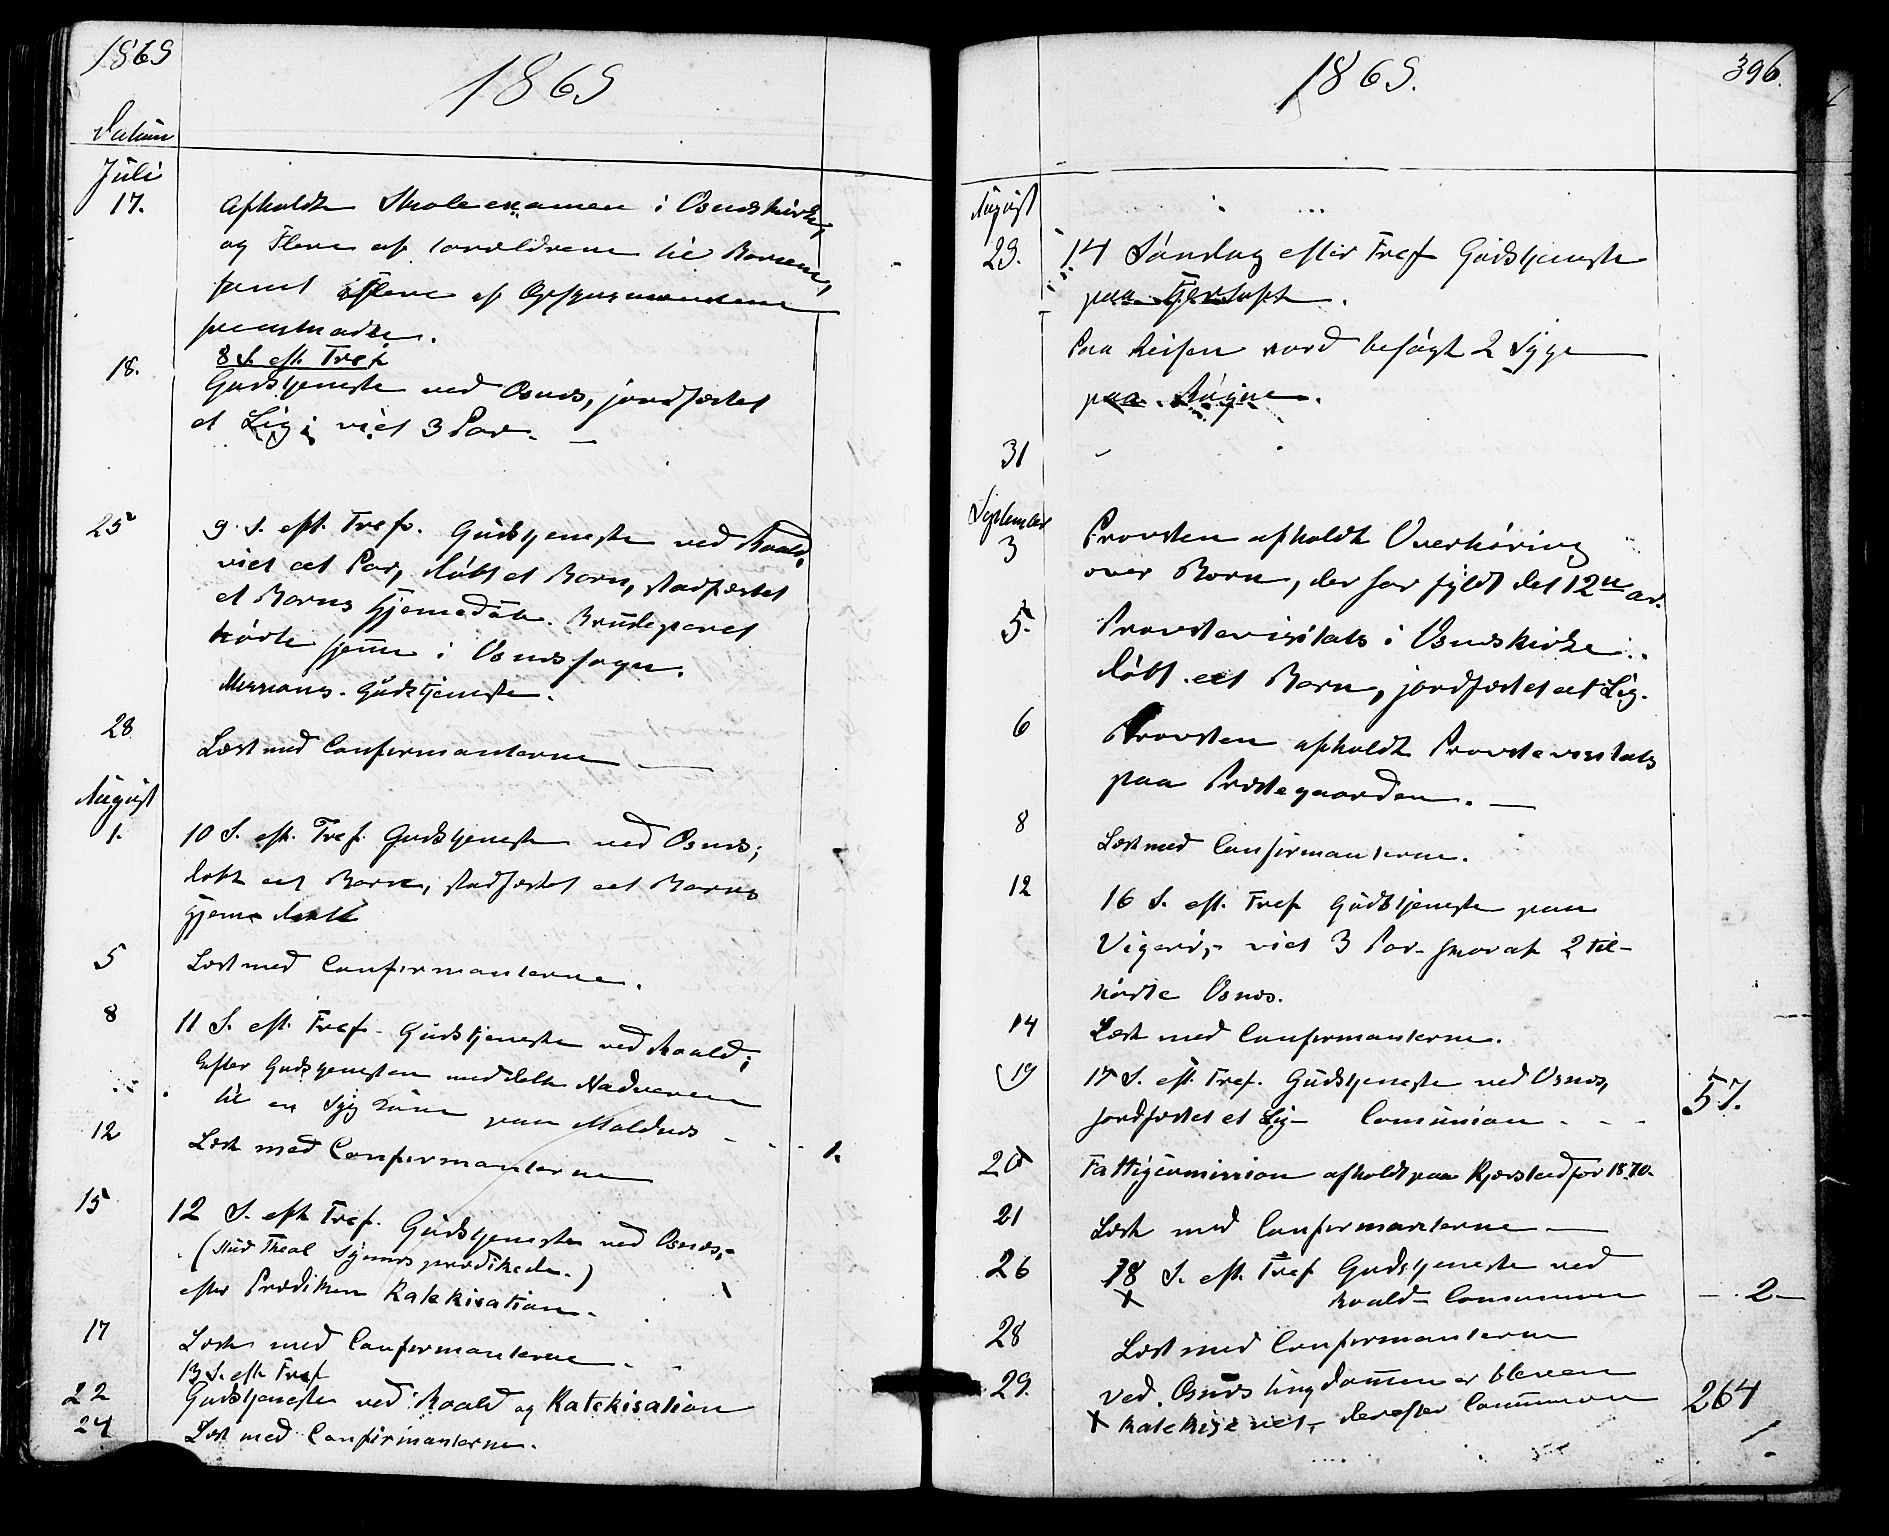 1869
1869
Datum
Juli
17.
Afholdt Skoleexamen i Osnæskirke,
og Flere af Forældrene til Børnene,
samt Flere af Opsynsmændene
fremmødte.
18.
8 S. eft. Tref.
Gudstjeneste ved Osnæs, jordfæstet
et Lig; viet 3 Par. —
25
9 S. eft. Tref. Gudstjeneste ved Roald,
viet eet Par, døbt et Barn, stadfæstet
et Barns Hjemedåb. Brudeparet
hørte hjemme i Osnæs sogn.
Missions-Gudstjeneste.
28
Læst med Confirmanterne —
August
1.
10 S. eft. Tref. Gudstjeneste ved Osnæs;
døbt eet Barn, stadfæstet eet Barns
Hjemedaab
5
Læst med Confirmanterne.
8
11 S. eft. Tref. Gudstjeneste ved Roald;
Efter Gudstjenesten meddelt Nadveren
til en Syg Kone paa Moldnæs - - - 1.
12
Læst med Confirmanterne
15
12 S. eft. Tref. Gudstjeneste ved Osnæs,-
(Stud. Theol. prædikede.)
efter Prædiken Katekisation.
17
Læst med Confirmanterne.
13 S. eft. Tref
22
Gudstjeneste ved Roald og Katekisation
24
Læst med Confirmanterne.
1869.
396.
August
29.
14 Søndag efter Tref Gudstjeneste
paa Fjertoft.
Paa Reisen vard besøgt 2 Syge
paa
31
September
3
Provsten afholdt Overhøring
over Børn, der har fyldt det 12te Ar.
5.
Provstevisitats i Osnæskirke.
døbt eet Barn, jordfæstet eet Lig.
6
Provsten afholdt Provstevisitats
paa Præstegaarden. —
8
Læst med Confirmanterne.
12
16 S. eft. Tref Gudstjeneste paa
Vigerø,- viet 3 Par- hvoraf 2 til-
hørte Osnæs.
14
Læst med Confirmanterne.
19
17 S. eft. Tref. Gudstjeneste ved Osnæs,
jordfæstet et Lig- Comunion - - - 57.
20
Fattigcomission afholdt paa Kjærstad for 1870.
21
Læst med Confirmanterne —
26
18 S. eft. Tref Gudstjeneste ved
X Roald- Comunion — 2 —
28
Læst med Confirmanterne
29.
Ved Osnæs Ungdommen er bleven
X Katekiseret,- derefter Communion 264